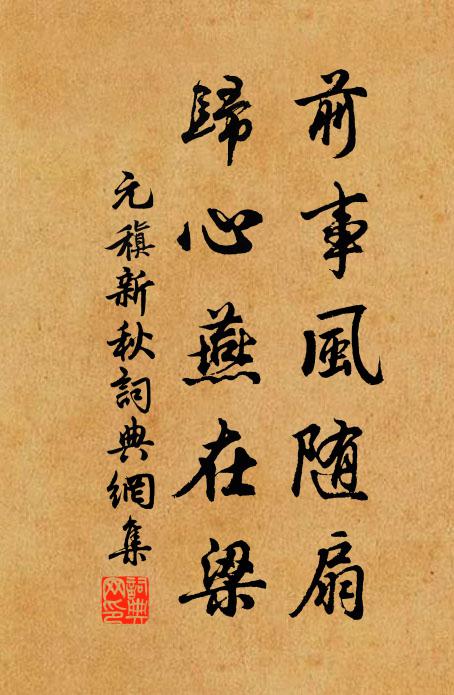 前事風随扇
歸心燕在梁
元稹新秋詞典網集
詞典網印